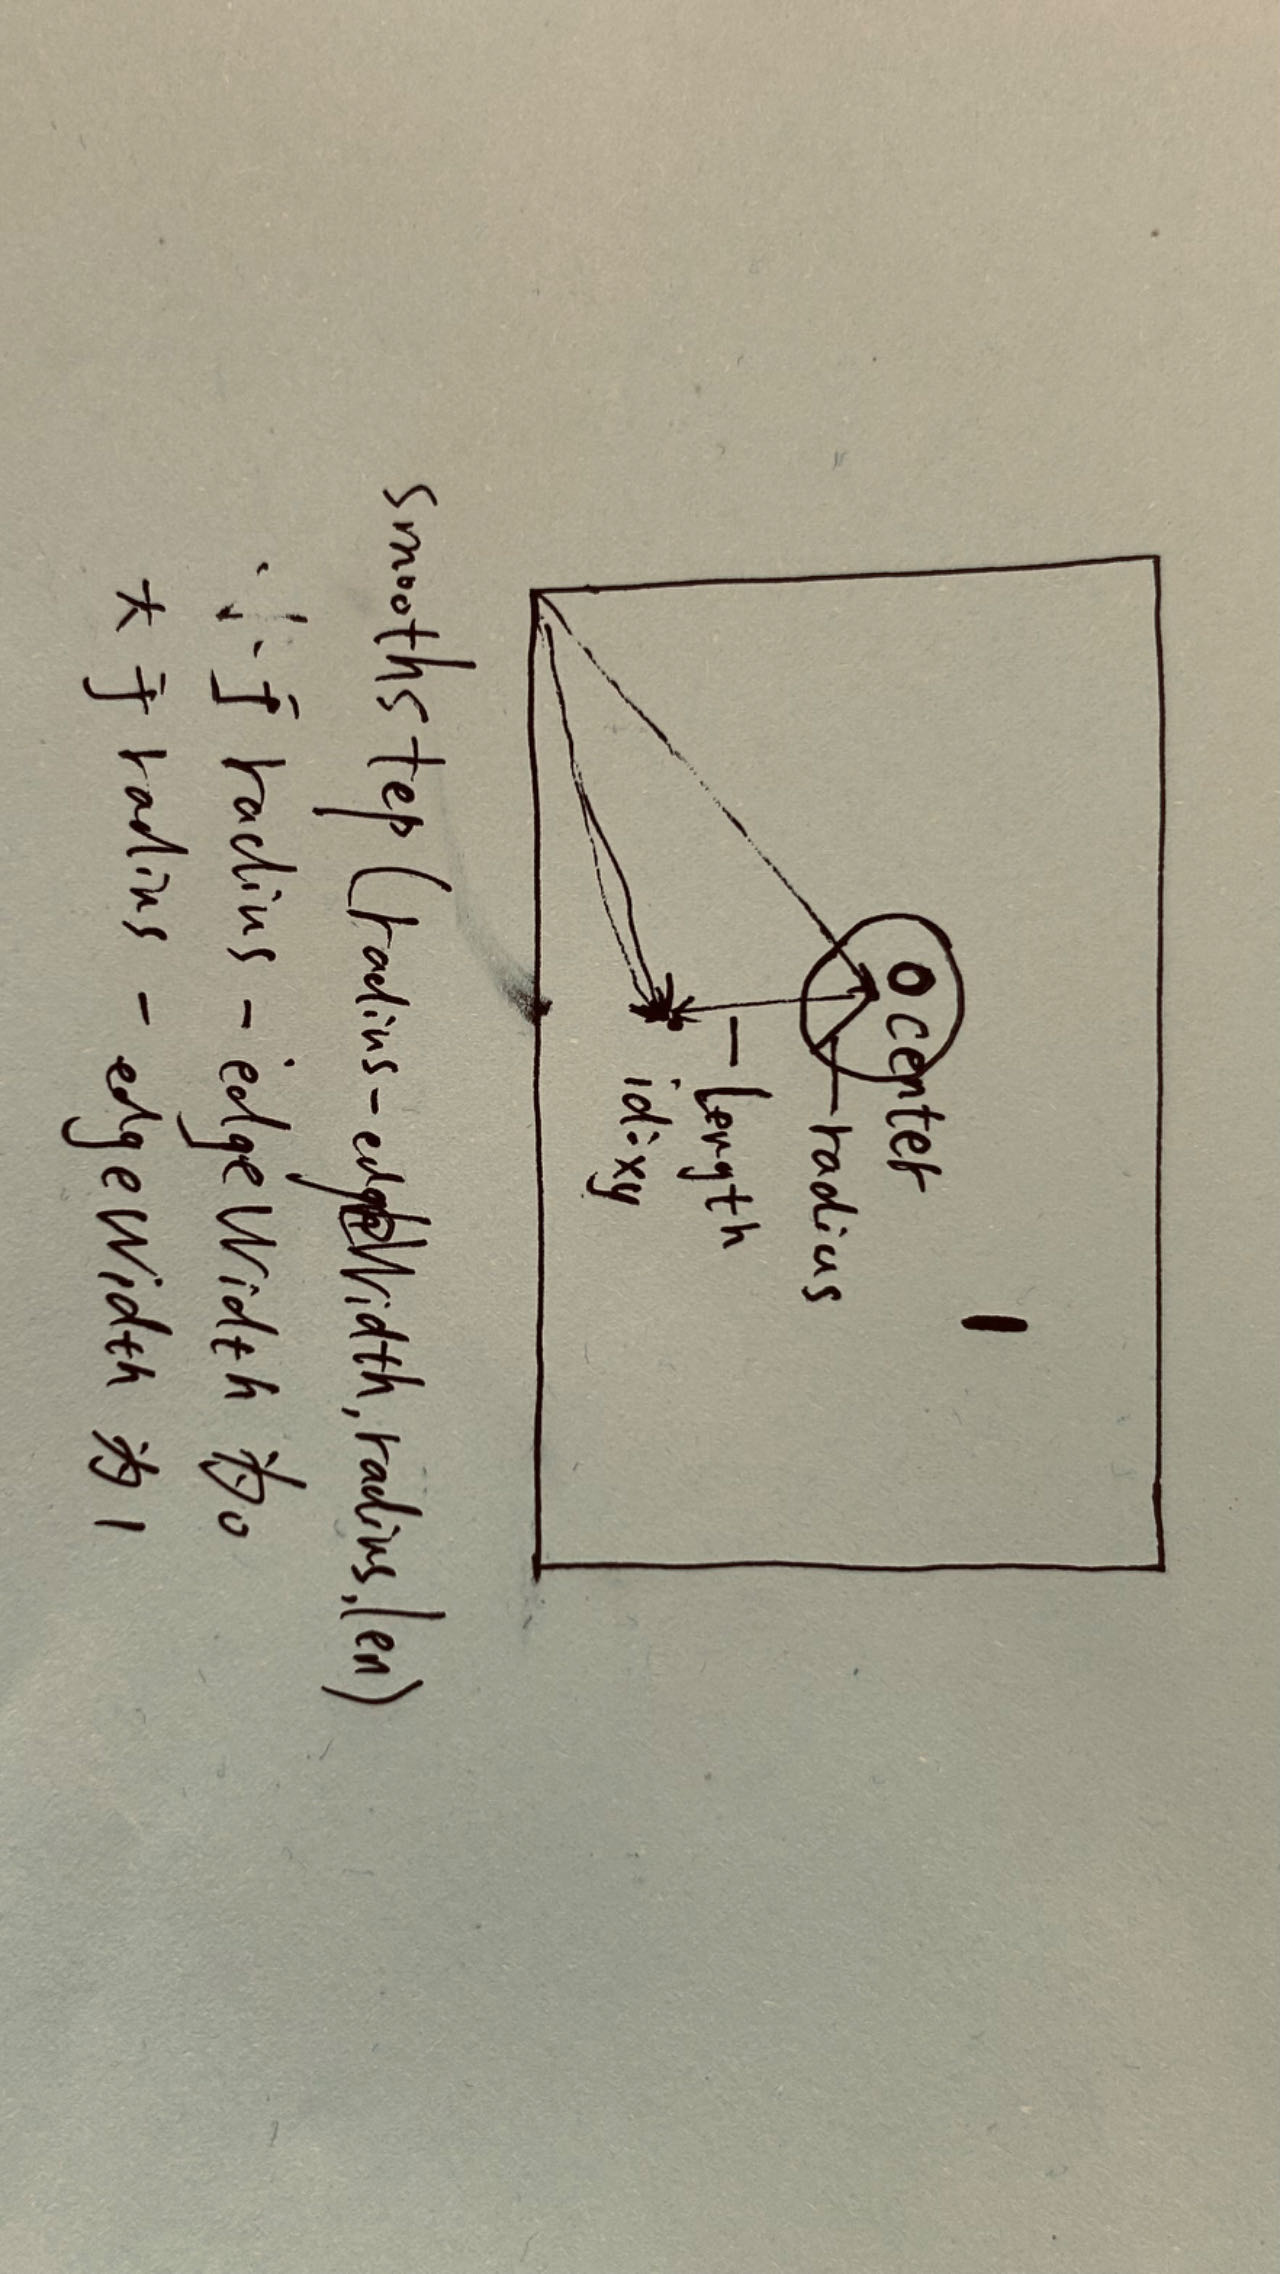 1
0 center
radius
length
id:xy
smoothstep(radius-edgeWidth,radius,len)
小于radius-edgeWidth为0
大于radius-edgeWidth为1